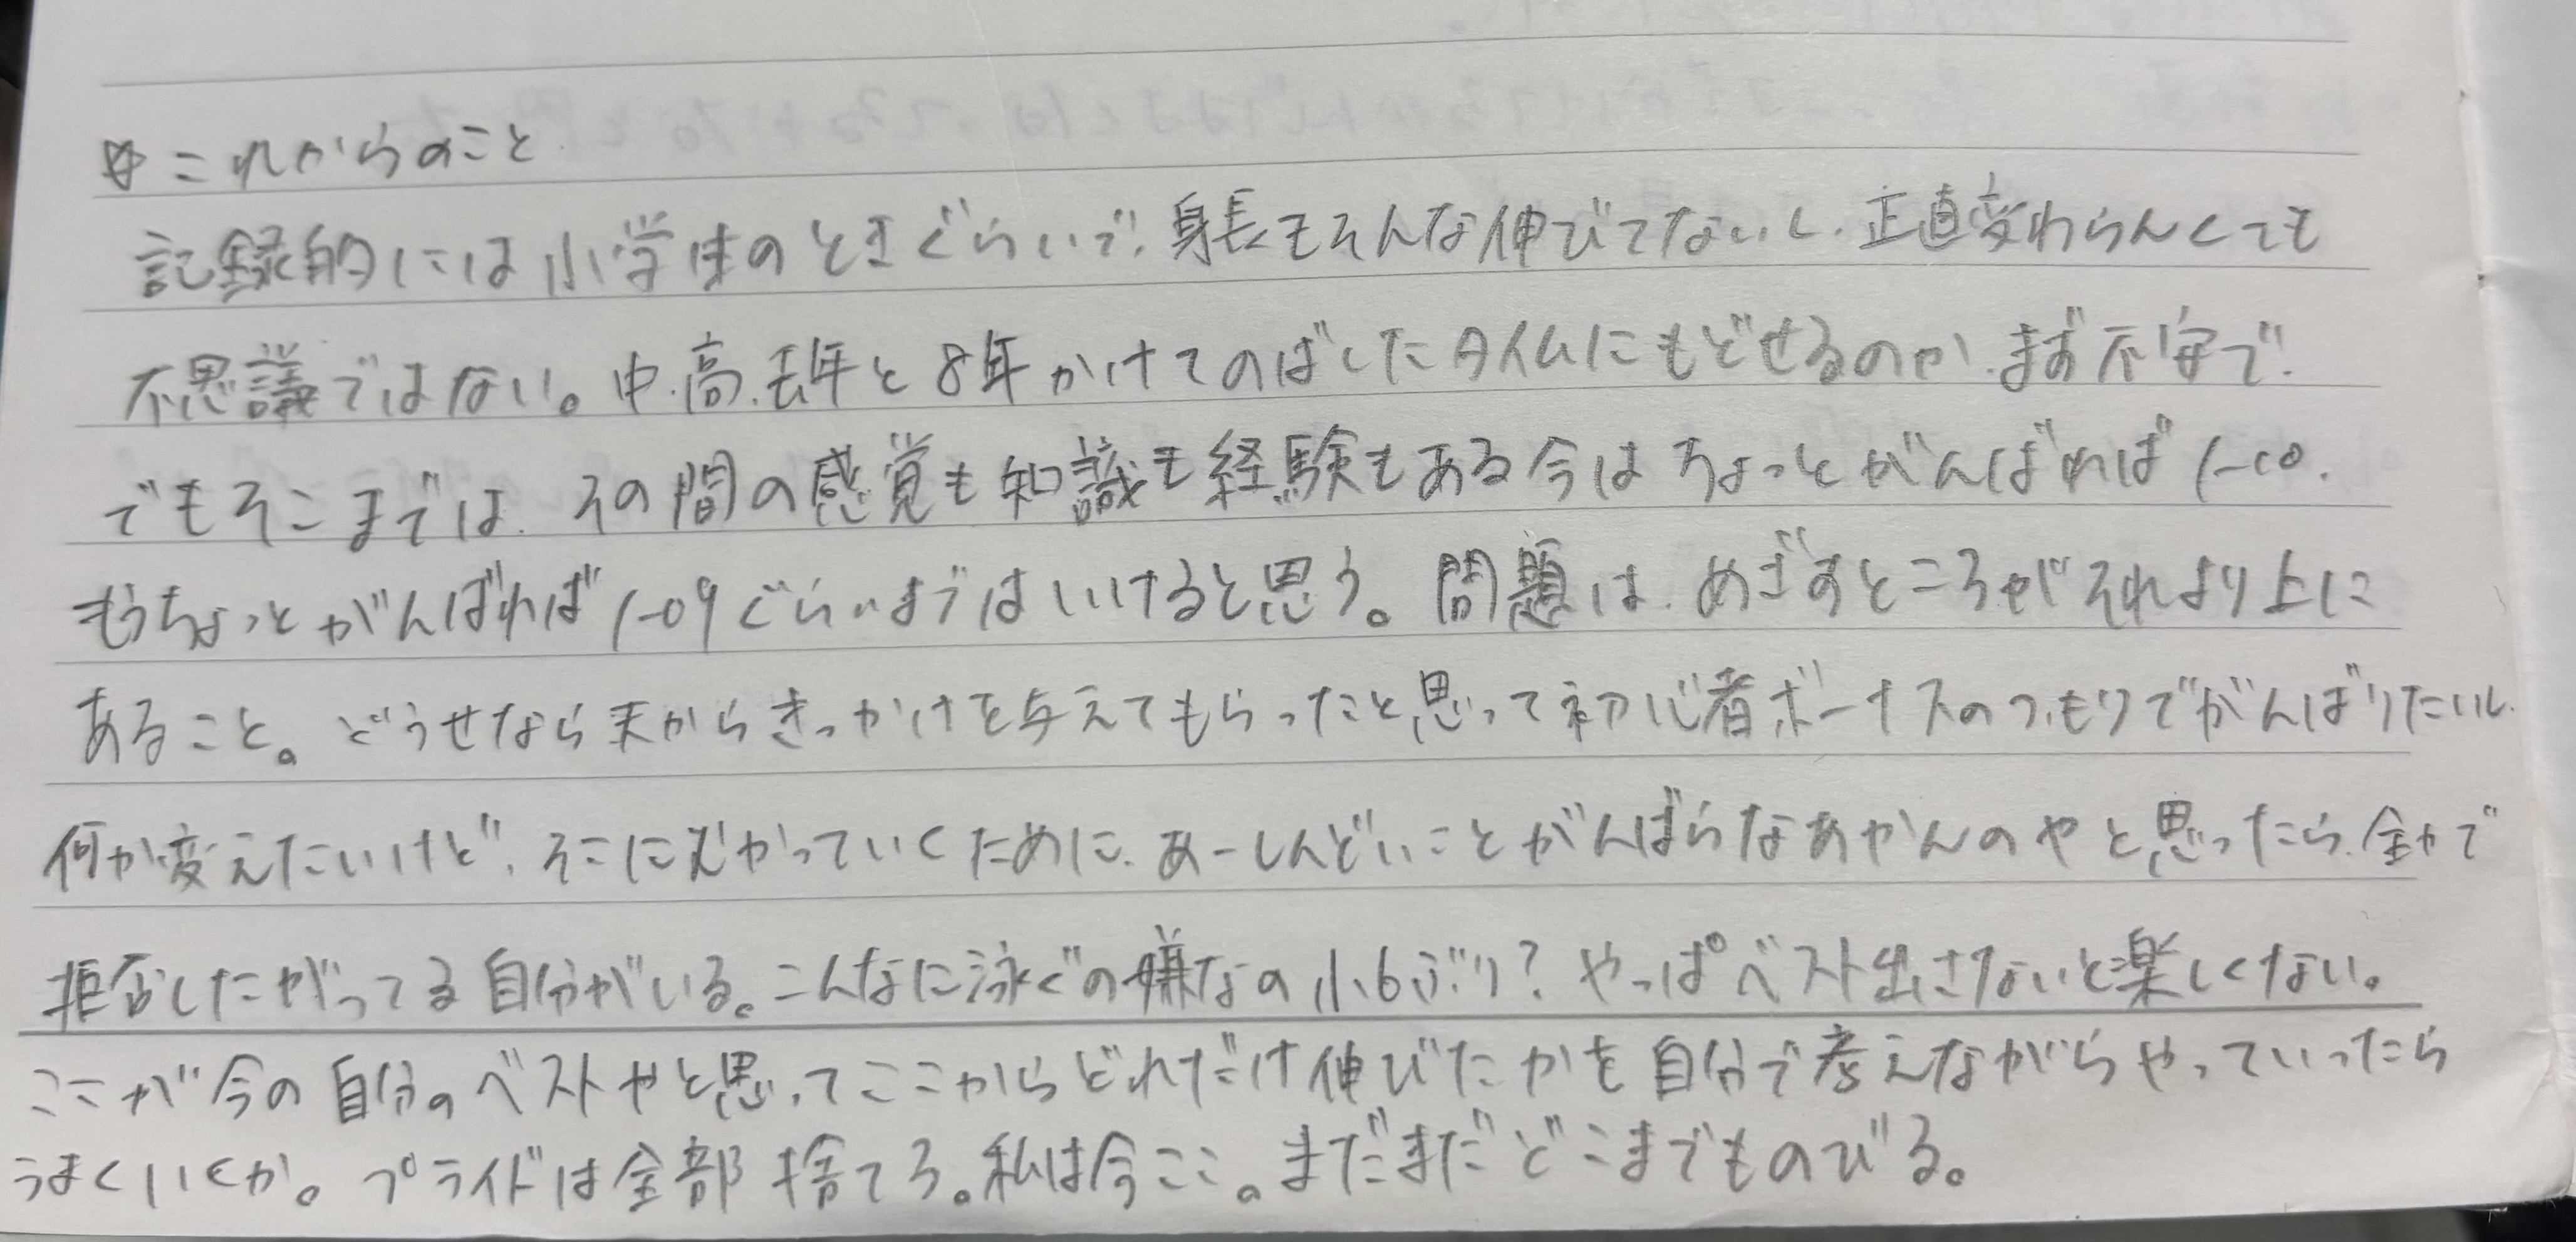 ☆これからのこと
記録的には小学生のときぐらいで、身長もそんな伸びてないし、正直変わらんくても
不思議ではない。中、高、去年と8年かけてのばしたタイムにもどせるのか、まず不安で、
でもそこまでは、その間の感覚も知識も経験もある今はちょっとがんばれば1-10、
もうちょっとがんばれば1-09ぐらいまではいけると思う。問題は、めざすところがそれより上に
あること。どうせなら天からきっかけを与えてもらったと思って初心者ボーナスのつもりでがんばりたいし、
何か変えたいけど、そこにむかっていくために、あーしんどいことがんばらなあかんのやと思ったら、全力で
拒否したがってる自分がいる。こんなに泳ぐの嫌なの小6ぶり?やっぱベスト出さないと楽しくない。
ここが今の自分のベストやと思ってここからどれだけ伸びたかを自分で考えながらやっていったら
うまくいくか。プライドは全部捨てろ。私は今ここ。まだまだどこまでものびる。